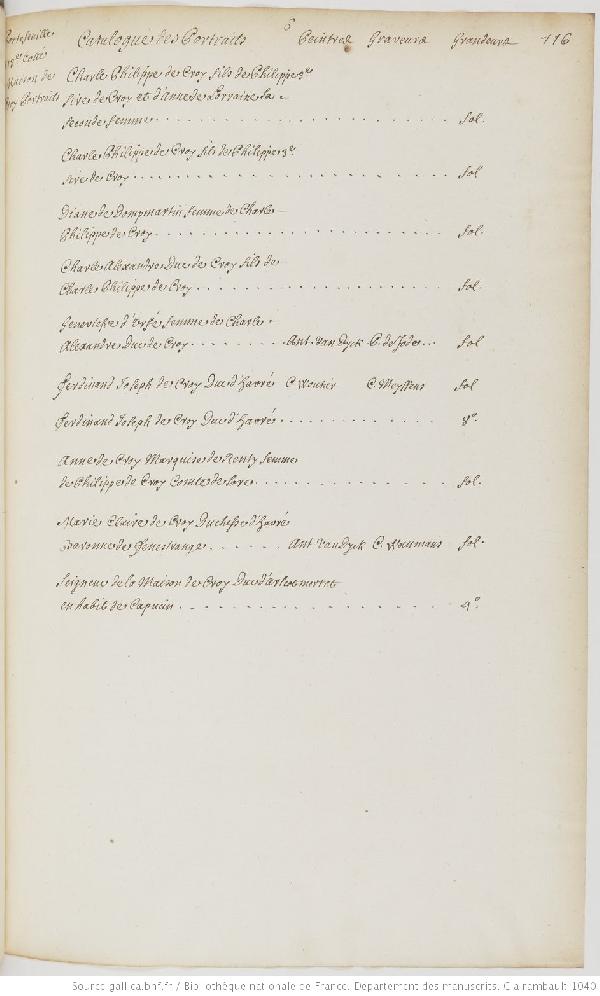 6
Portefeuille Catalogue des Portraits Peintres Graveurs Grandeurs 116
Cotté
Maison de
Croy Portraits
Charle Philippe de Croy fils de Philippe 3e
Sire de Croy et d'Anne de Lorraine sa
seconde femme . . . . . . . . . . fol.
Charle Philippe de Croy fils de Philippe 3e
sire de Croy . . . . . . . . . . fol
Diane de Dompmartin femme de Charle
Philippe de Croy . . . . . . . . . . fol.
Charle Alexandre Duc de Croy fils de
Charle Philippe de Croy . . . . . . . . . . fol.
Genevieve d'Urfé femme de Charle
Alexandre Duc de Croy . . . . . . . . Ant. van Dyck P. de Jode . . . fol
Ferdinand Joseph de Croy Duc d'Havré C Wouter C. Meyssens fol
Ferdinand Joseph de Croy Duc d'Havré . . . . . . . . . . 8°.
Anne de Croy Marquise de Renty femme
de Philippe de Croy Comte de Sore . . . . . . . . . . fol.
Marie Claire de Croy Duchesse d'Havré
Baronne de Fenestrange . . . . . . Ant Van Dyck C. Waumans fol.
Seigneur de la Maison de Croy Duc d'Arscot mort
en habit de Capucin . . . . . . . . . . 4°.
Source gallica.bnf.fr / Bibliothèque nationale de France. Département des manuscrits. Clairambault 1040.